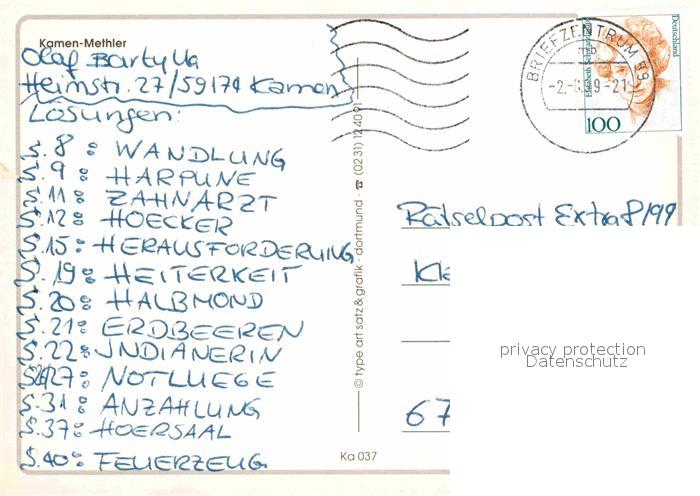 Kamen-Methler
Olaf Bartylla
Heimstr. 27/59174 Kamen
Lösungen:
S. 8: WANDLUNG
S. 9: HARPUNE
S. 11: ZAHNARZT
S. 12: HOECKER
S. 15: HERAUSFORDERUNG
S. 19: HEITERKEIT
S. 20: HALBMOND
S. 21: ERDBEEREN
S. 22: INDIANERIN
S. 26/27: NOTLUEGE
S. 31: ANZAHLUNG
S. 37: HOERSAAL
S. 40: FEUERZEUG
© type art satz & grafik · dortmund · ☎ (0231) 124091
Ka 037
BRIEFZENTRUM 59
Deutschland
100
Rätselpost Extra 8/99
67
privacy protection
Datenschutz